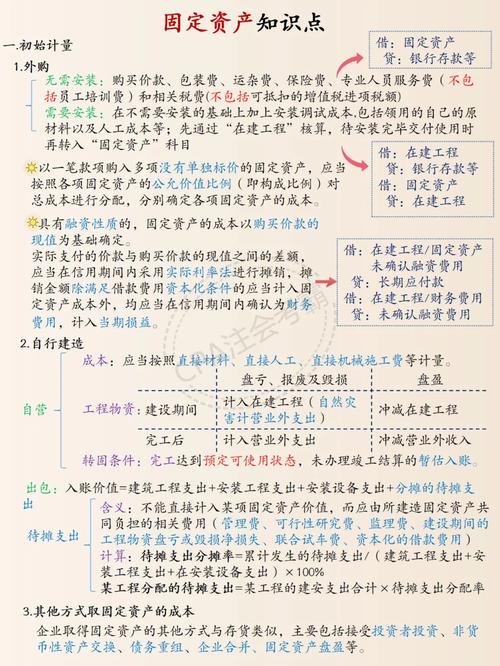 固定资产知识点
一.初始计量
1.外购
无需安装:购买价款、包装费、运杂费、保险费、专业人员服务费(不包
括员工培训费)和相关税费(不包括可抵扣的增值税进项税额)
需要安装:在不需要安装的基础上加上安装调试成本,包括领用的自己的原
材料以及人工成本等;先通过“在建工程”核算,待安装完毕交付使用时
再转入“固定资产”科目
借:固定资产
贷:银行存款等
借:在建工程
贷:银行存款等
借:固定资产
贷:在建工程
以一笔款项购入多项没有单独标价的固定资产,应当
按照各项固定资产的公允价值比例(即构成比例)对
总成本进行分配,分别确定各项固定资产的成本。
具有融资性质的,固定资产的成本以购买价款的
现值为基础确定。
实际支付的价款与购买价款的现值之间的差额,
应当在信用期间内采用实际利率法进行摊销,摊
销金额除满足借款费用资本化条件的应当计入固
定资产成本外,均应当在信用期间内确认为财务
费用,计入当期损益。
借:在建工程/固定资产
未确认融资费用
贷:长期应付款
借:在建工程/财务费用
贷:未确认融资费用
CPA注会考霸
2.自行建造
自营
成本:应当按照直接材料、直接人工、直接机械施工费等计量。
盘亏、报废及毁损 盘盈
工程物资:建设期间 计入在建工程(自然灾害计营业外支出) 冲减在建工程
完工后 计入营业外支出 冲减营业外收入
转固条件:完工达到预定可使用状态,未办理竣工结算的暂估入账。
出包:入账价值=建筑工程支出+安装工程支出+安装设备支出+分摊的待摊支
出
待摊支出
含义:不能直接计入某项固定资产价值,而应由所建造固定资产共
同负担的相关费用(管理费、可行性研究费、监理费、建设期间的
工程物资盘亏或毁损净损失、联合试车费、资本化的借款费用)
计算:待摊支出分摊率=累计发生的待摊支出/(建筑工程支出+安
装工程支出+在安装设备支出)×100%
某工程分配的待摊支出=某工程的建安支出合计×待摊支出分配率
3.其他方式取固定资产的成本
企业取得固定资产的其他方式与存货类似,主要包括接受投资者投资、非货
币性资产交换、债务重组、企业合并、固定资产盘盈等。